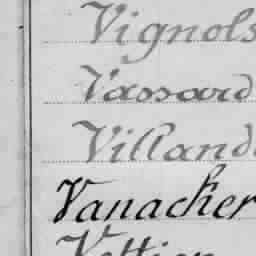 Vignols
Vassard
Villand
Vanacker
Vettier